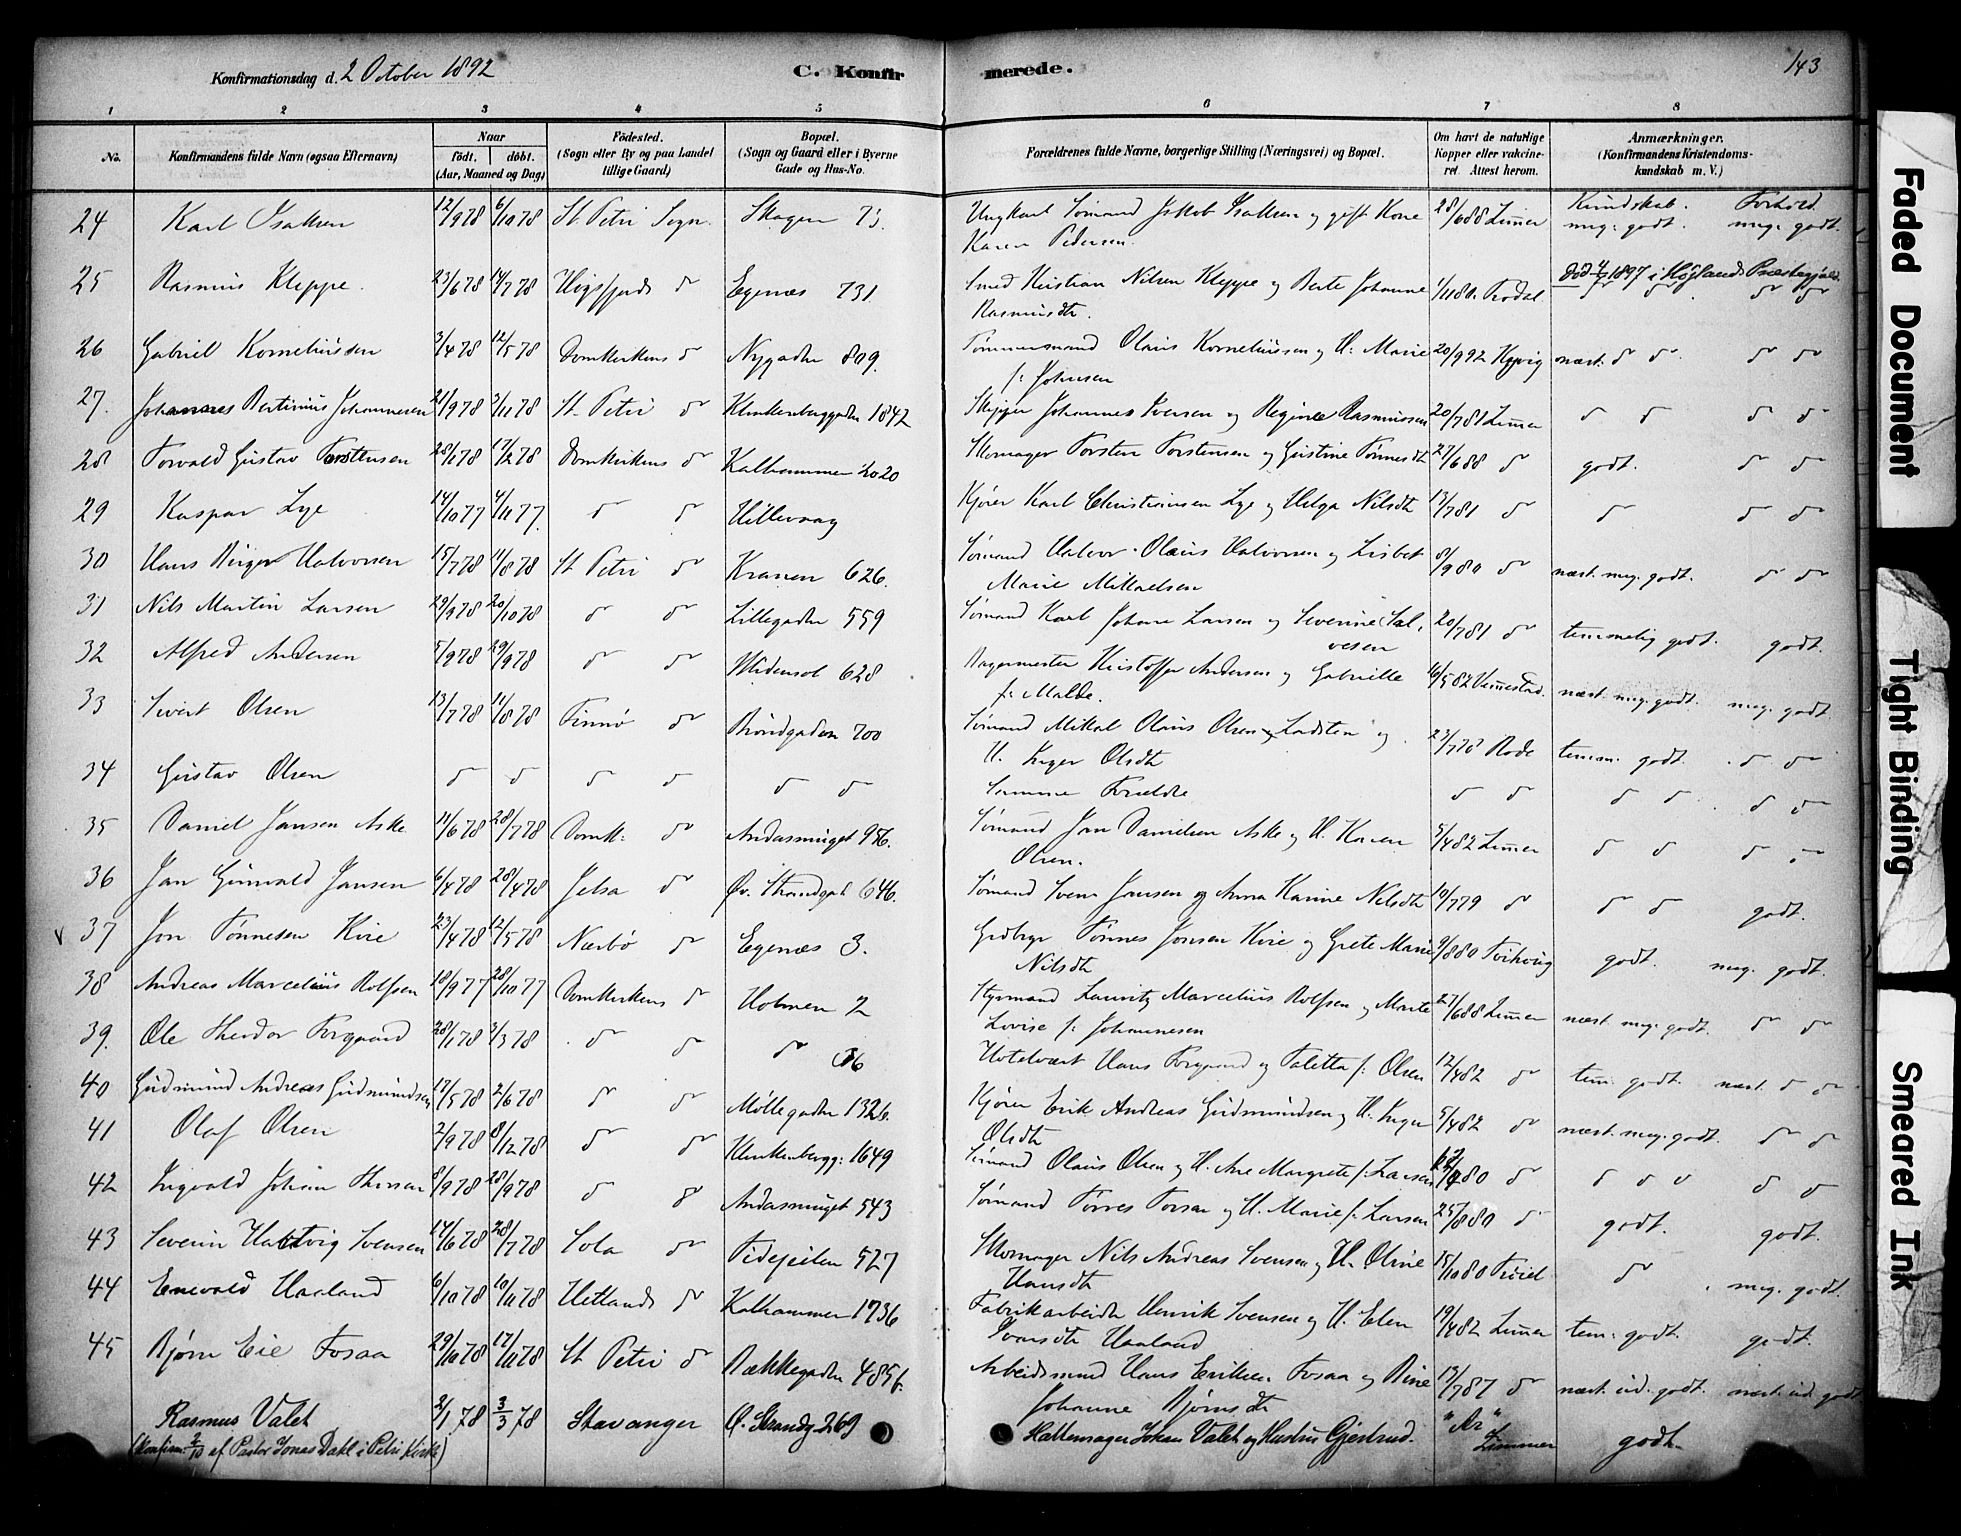 Konfirmationsdag d. 2 October 1892 C. Konfir merede. 143
1 2 3 4 5 6 7 8
No. Konfirmandens fulde Navn (ogsaa Efternavn) Naar født. døbt. (Aar, Maaned og Dag) Fødested. (Sogn eller By og paa Landet tillige Gaard) Bopæl. (Sogn og Gaard eller i Byerne Gade og Hus-No. Forældrenes fulde Navne, borgerlige Stilling (Næringsvei) og Bopæl. Om havt de naturlige Kopper eller vakcineret. Attest herom. Anmærkninger. (Konfirmandens Kristendomskundskab m. V.)
Kundskab. Forhold.
24 Karl Isaksen 12/9 78 6/10 78 St Petri Sogn. Skagen 73. Ungkarl Sømand Jakob Isaksen og gift Kone 28/6 88 Zimmer meg. godt. meg. godt.
Karen Pedersen.
25 Rasmus Kleppe. 23/6 78 14/7 78 Høgsfjords do Egenæs 731. Smed Kristian Nilsen Kleppe og Berte Johanne 1/11 80. do do do do
Rasmusdtr. død 1897 i Høglands Præstegjæld.
26 Gabriel Korneliussen 3/4 78 12/5 78 Domkirkens do Nygaden 809. Tømmermand Olaus Korneliussen og H: Marie 20/9 92 næst. do do do do
f: Johnsen
27. Johannes Bertinius Johannesen 21/9 78 3/11 78 St. Petri do Klinkenberggaden 1842 Skipper Johannes Iversen og Regine Rasmussen 20/7 81 Zimmer do do do do
28 Torvald Gustav Torstensen 28/1 78 17/2 78 Domkirkens do Kalhammer 2020 Skomager Torsten Torstensen og Gustine Tønnesdtr 27/6 88 do godt. do do
29 Kaspar Lye 14/10 77 4/11 77. do do Hillevaag Kjører Karl Christiansen Lye og Helga Nilsdtr 13/7 81 do do do do
30 Hans Birger Halvorsen 15/7 78 11/8 78 St Petri do Kranen 626. Sømand Halvor Olaus Halvorsen og Lisbet 8/9 80 do næst. meg. godt. do do
Marie Mikkelsen
31 Nils Martin Larsen 29/9 78 20/10 78 do do Lillegaden 559 Sømand Karl Johan Larsen og Severine Salvesen 20/7 81 do temmelig godt. godt.
32 Alfred Andersen 5/9 78 29/9 78 do do 628 Bagermester Kristoffer Andersen og Gabrielle 16/5 82 næst. meg. godt. meg. godt.
f: Malde.
33 Sivert Olsen 13/7 78 11/8 78 Finnø do Brøndgaden 700 Sømand Mikal Olaus Olsen og 23/7 78 Rode temm. godt. do do
H. Inger Olsdtr
34 Gustav Olsen do do do do do do Samme Forældre do do do do do do
35 Daniel Jansen Aske 11/6 78 28/7 78 Domk: do Andasmuget 956. Sømand Jan Danielsen Aske og H. Karen 5/4 82 Zimmer do do do do
Olsen.
36 Jan Gunvald Jansen 6/4 78 28/4 78 Jelsa do Øv. Strandgad. 646. Sømand Svend Jansen og Anna Karine Nilsdtr 10/7 79 do do do godt.
37 Jon Tønnesen Kvie 23/4 78 12/5 78 Nærbø do Egenæs 3. Grdbrgr Tønnes Jonsen Kvie og Grete Marie 9/8 80 godt. meg. godt.
Nilsdtr
38 Andreas Marcelius Rolfsen 18/9 77 28/10 77 Domkirkens do Holmen 2 Styrmand Lauritz Marcelius Rolfsen og Marte 27/6 88 Zimmer næst. meg. godt. do do
Lovise f: Johannesen
39. Ole Theodor Torgaard 28/1 78 3/3 78 do do do 36 Hotelvært Hans Torgaard og Taletta f: Olsen 12/4 82 do tem. godt. næst. do do
40 Gudmund Andreas Gudmundsen 17/5 78 2/6 78 do do Møllegaden 1326. Kjører Erik Andreas Gudmundsen og H. Inger 5/4 82 do næst. meg. godt. do do
Olsdtr
41 Olaf Olsen 2/9 78 8/12 78 do do Klinkenbergg: 1649 Sømand Olaus Olsen og H. Ane Margrete f: Larsen 80 do do do do do do
42 Ingvald Johan 8/9 78 28/9 78 do do Andasmuget 543 Sømand Tørres og H. Marie f: Larsen 25/8 80 do godt. godt.
43 Severin Hartvig Svensen 14/6 78 28/7 78 Sola do 527 Skomager Nils Andreas Svensen og H. Oline 15/10 80 do meg. godt.
Hansdtr
44 Enevald Haaland 6/10 78 10/11 78 Hetlands do Kalhammer 1736 Fabrikarbeider Henrik Svensen og H. Elen 19/4 82 Zimmer tem: godt. godt.
Haaland
45 Bjørn Eie Fosaa 29/10 78 17/11 78 St. Petri do Bækkegaden 485b. Arbeidsmand Hans Eriksen Fosaa og Bine 13/7 87 do næst. ud. godt. næst. ud. godt
Johanne Bjørnsdtr
Rasmus Valet 2/1 78 3/3 78 Stavanger Ø. Strandg. 269 Hattemager Johan Valet og Hustru Gjertrud. "Ar" Zimmer godt.
(Konfirm. 2/10 af Pastor Jonas Dahl i Petri Kirke)
Faded Document
Tight Binding
Smeared Ink